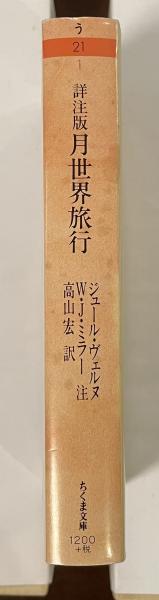 う
21
1
詳注版 月世界旅行
ジュール・ヴェルヌ
W・J・ミラー 注
高山宏 訳
ちくま文庫
1200
+税